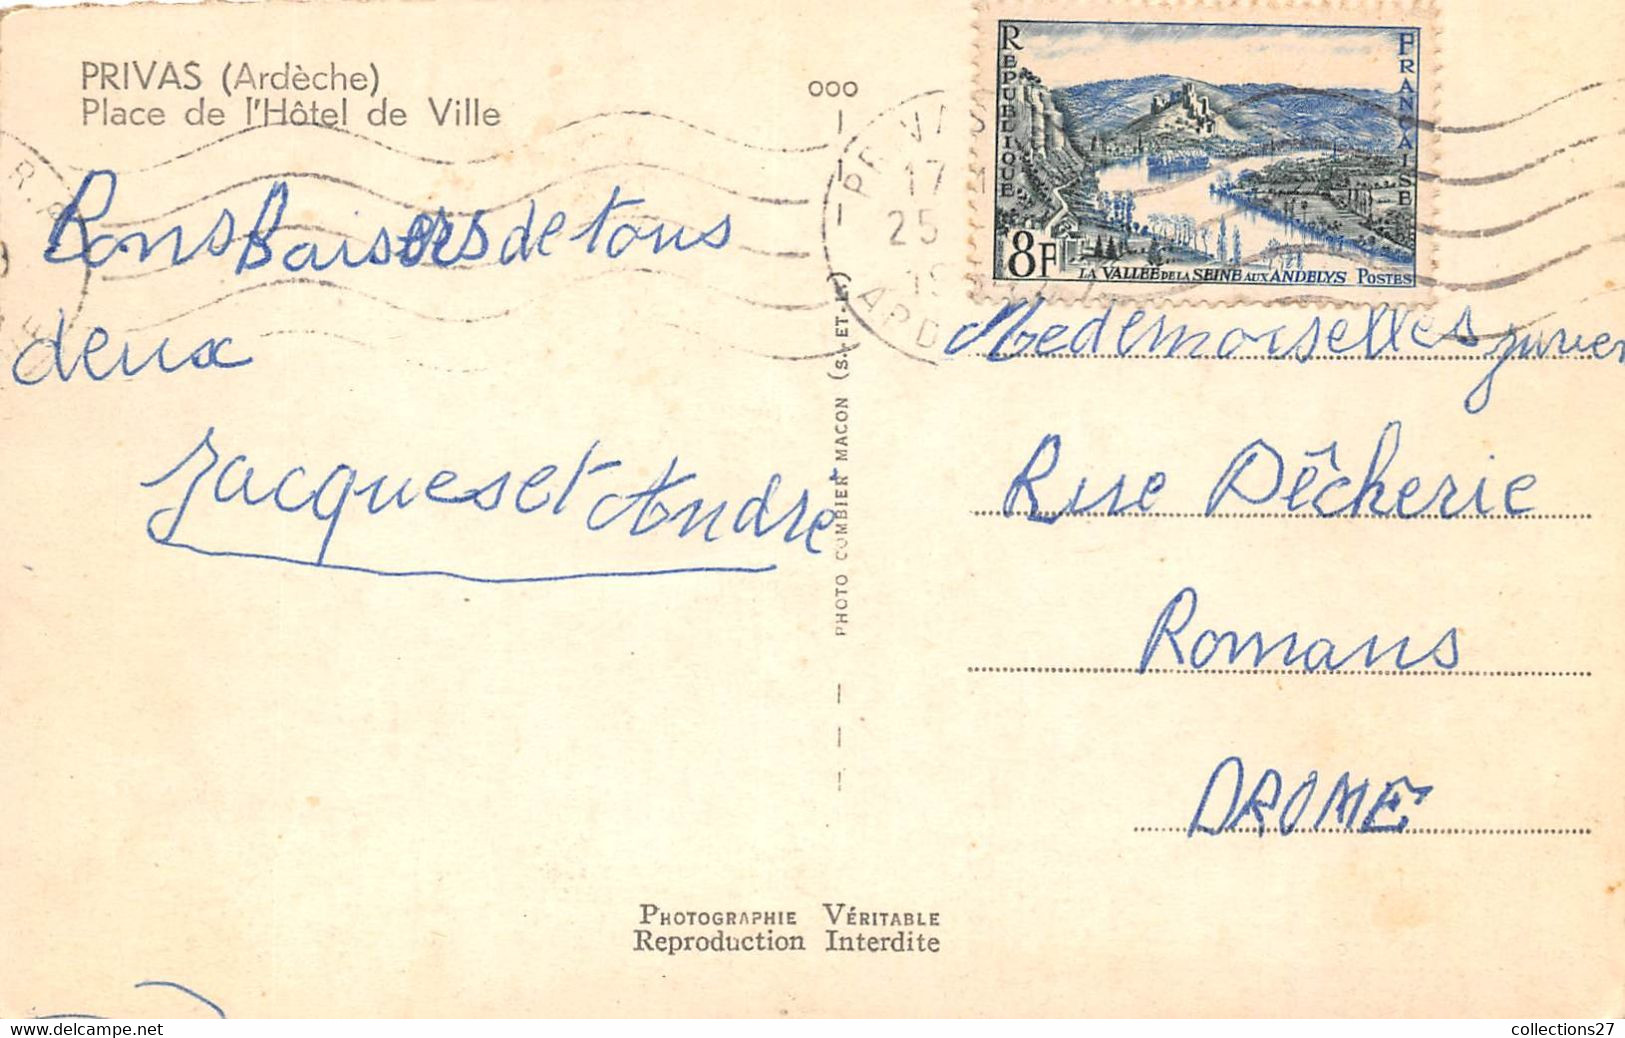 PRIVAS (Ardèche)
Place de l'Hôtel de Ville
Bons Baisers de tous
deux
Jacques et Andre
PHOTO COMBIER MACON (S.-ET-L.)
RÉPUBLIQUE FRANÇAISE
8F LA VALLÉE DE LA SEINE AUX ANDELYS POSTES
PRIVAS
17
25
19
ARD
R.P
Medemoiselles
Rue Pêcherie
Romans
DROME
PHOTOGRAPHIE VÉRITABLE
Reproduction Interdite
collections27